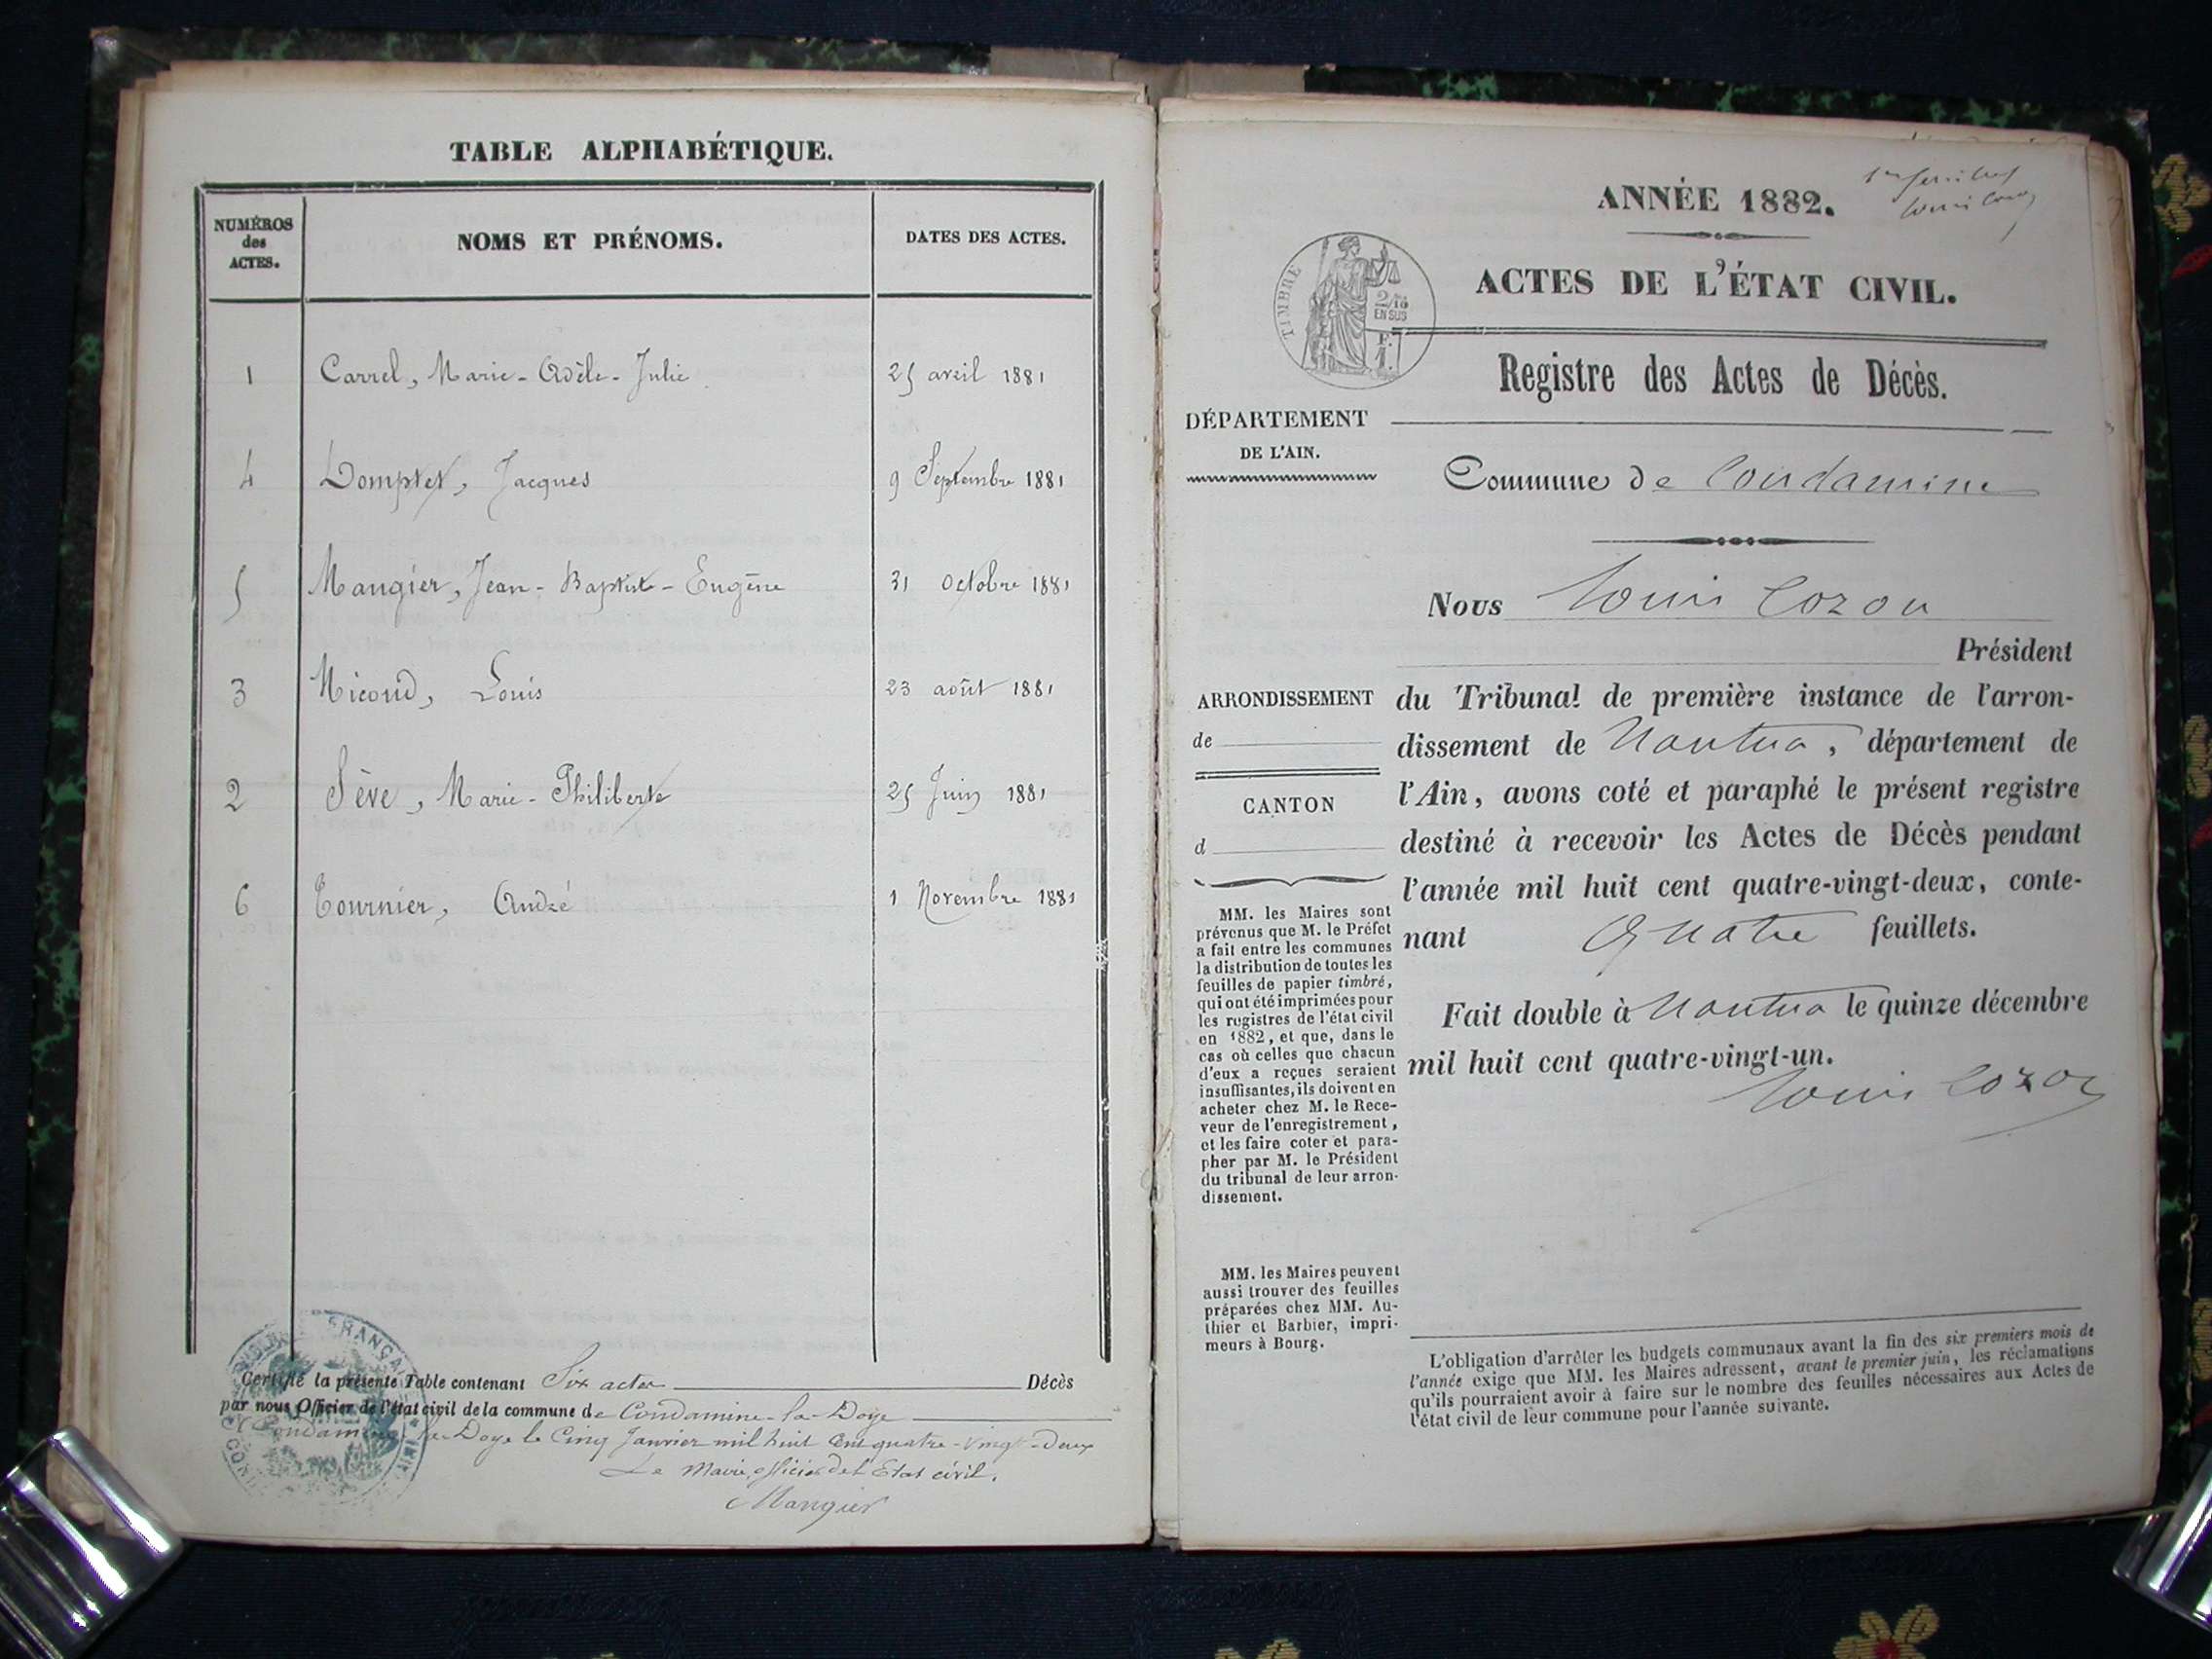 TABLE ALPHABÉTIQUE.
NUMÉROS
des
ACTES.
NOMS ET PRÉNOMS.
DATES DES ACTES.
1 Carrel, Marie-Adèle-Julie 25 avril 1881
4 Domptet, Jacques 9 Septembre 1881
5 Mangier, Jean-Baptiste-Eugène 31 Octobre 1881
3 Nicoud, Louis 23 août 1881
2 Sève, Marie-Philiberte 25 Juin 1881
6 Tournier, André 1 Novembre 1881
Certifié la présente Table contenant Six actes Décès
par nous Officier de l'état civil de la commune de Condamine-la-Doye
A Condamine-la-Doye le Cinq Janvier mil huit cent quatre-vingt-deux
Le Maire, officier de l'Etat civil,
Mangier
ANNÉE 1882.
ACTES DE L'ÉTAT CIVIL.
TIMBRE
2/10
EN SUS
Registre des Actes de Décès.
DÉPARTEMENT
DE L'AIN.
Commune de Condamine
Nous Louis Cozon
Président
du Tribunal de première instance de l'arron-
dissement de Nantua, département de
l'Ain, avons coté et paraphé le présent registre
destiné à recevoir les Actes de Décès pendant
l'année mil huit cent quatre-vingt-deux, conte-
nant Quatre feuillets.
Fait double à Nantua le quinze décembre
mil huit cent quatre-vingt-un.
Louis Cozon
ARRONDISSEMENT
de
CANTON
d
MM. les Maires sont
prévenus que M. le Préfet
a fait entre les communes
la distribution de toutes les
feuilles de papier timbré,
qui ont été imprimées pour
les registres de l'état civil
en 1882, et que, dans le
cas où celles que chacun
d'eux a reçues seraient
insuffisantes, ils doivent en
acheter chez M. le Rece-
veur de l'enregistrement,
et les faire coter et para-
pher par M. le Président
du tribunal de leur arron-
dissement.
MM. les Maires peuvent
aussi trouver des feuilles
préparées chez MM. Au-
thier et Barbier, impri-
meurs à Bourg.
L'obligation d'arrêter les budgets communaux avant la fin des six premiers mois de
l'année exige que MM. les Maires adressent, avant le premier juin, les réclamations
qu'ils pourraient avoir à faire sur le nombre des feuilles nécessaires aux Actes de
l'état civil de leur commune pour l'année suivante.